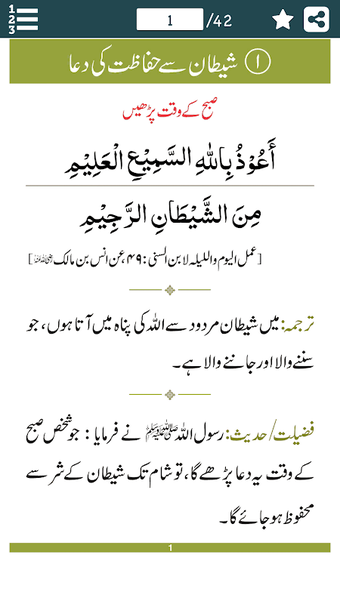 1
2
3
1 /42
۱ شیطان سے حفاظت کی دعا
صبح کے وقت پڑھیں
أَعُوْذُ بِاللّٰهِ السَّمِيْعِ الْعَلِيْمِ
مِنَ الشَّيْطَانِ الرَّجِيْمِ
[عمل الیوم واللیلہ لابن السنی: ۴۹، عن انس بن مالک ؓ]
ترجمہ: میں شیطان مردود سے اللہ کی پناہ میں آتا ہوں، جو
سننے والا اور جاننے والا ہے۔
فضیلت/حدیث: رسول اللہ ﷺ نے فرمایا: جو شخص صبح
کے وقت یہ دعا پڑھے گا، تو شام تک شیطان کے شر سے
محفوظ ہو جائے گا۔
1